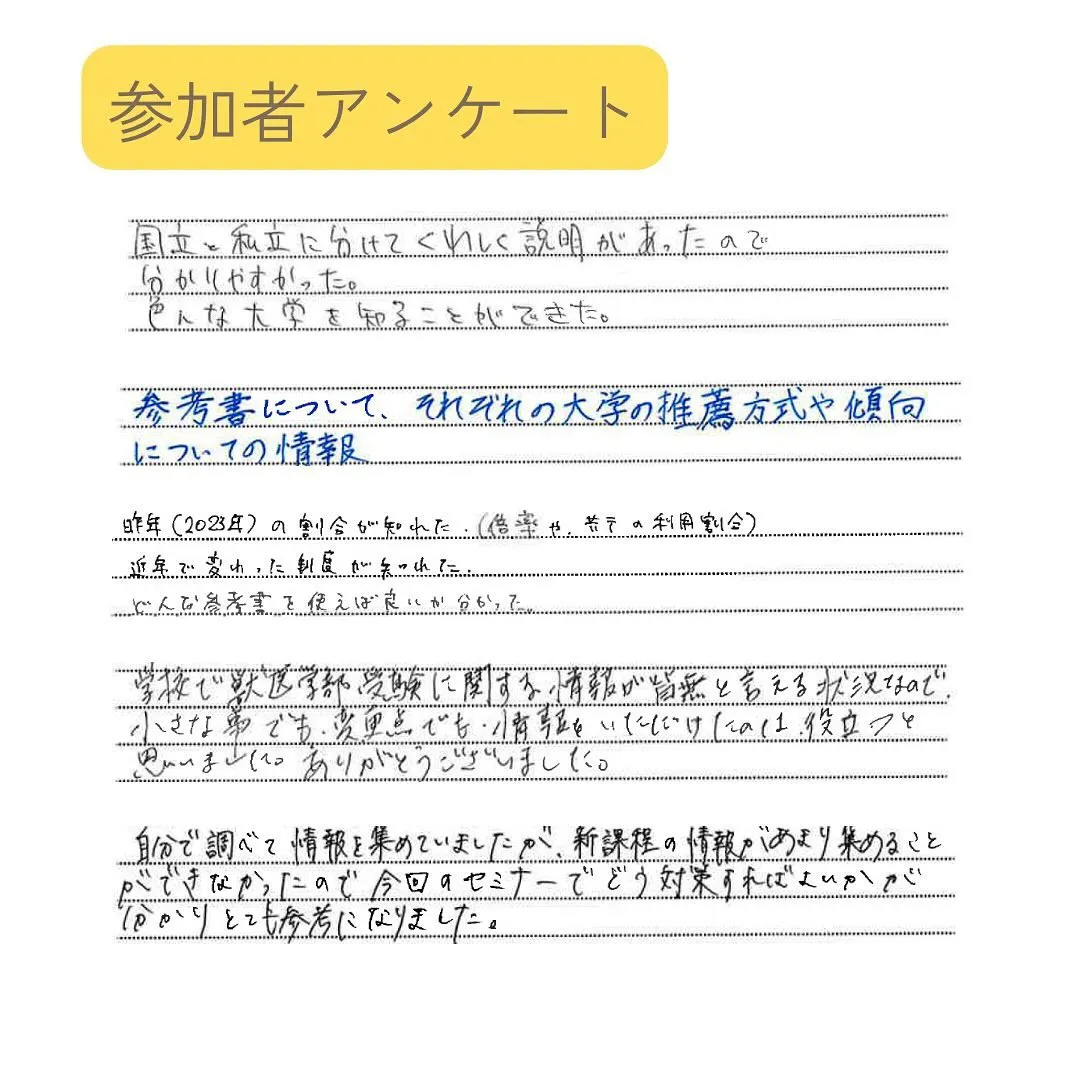 参加者アンケート
国立と私立に分けてくわしく説明があったので
分かりやすかった。
色んな大学を知ることができた。
参考書について、それぞれの大学の推薦方式や傾向
についての情報
昨年(2023年)の割合が知れた.(倍率や、共テの利用割合)
近年で変わった制度が知れた.
どんな参考書を使えば良いか分かった。
学校で獣医学部受験に関する情報が皆無と言える状況なので、
小さな事でも、変更点でも、情報をいただけたのは、役立つと
思いました。ありがとうございました。
自分で調べて情報を集めていましたが、新課程の情報があまり集めること
ができなかったので今回のセミナーでどう対策すればよいかが
分かりとても参考になりました。